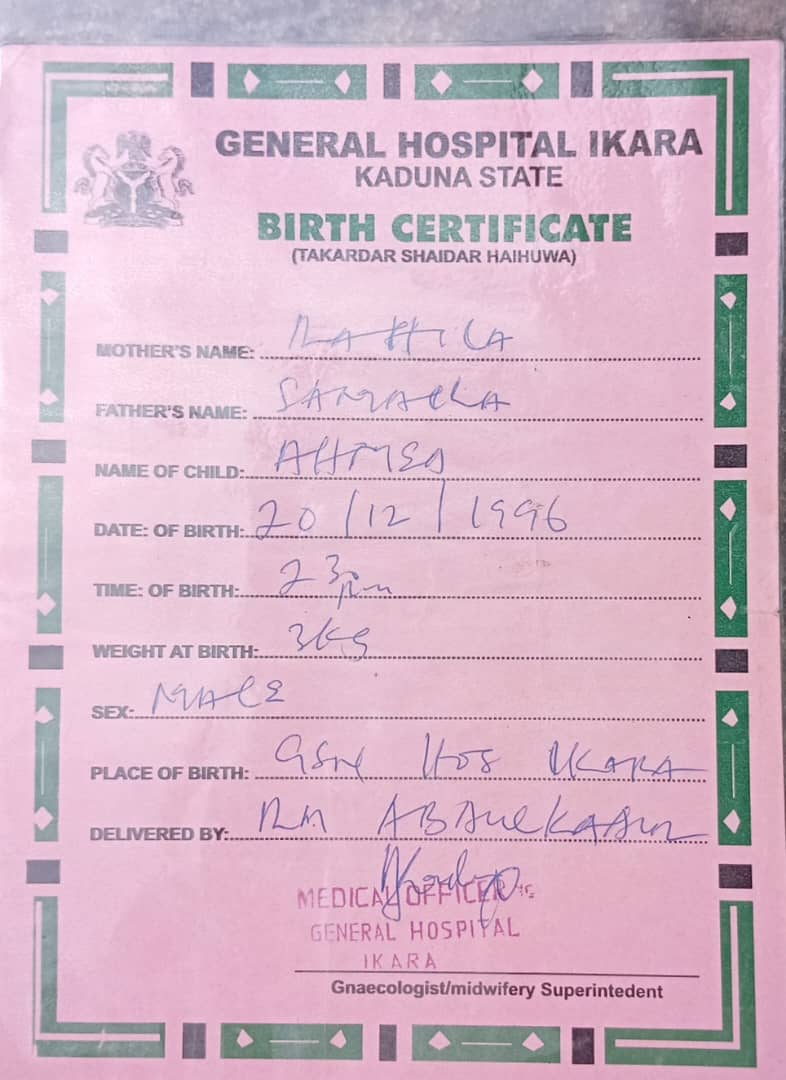 GENERAL HOSPITAL IKARA
KADUNA STATE
BIRTH CERTIFICATE
(TAKARDAR SHAIDAR HAIHUWA)
MOTHER'S NAME: RAHILA
FATHER'S NAME: SAMAILA
NAME OF CHILD: AHMED
DATE: OF BIRTH: 20/12/1996
TIME: OF BIRTH: 2 30 pm
WEIGHT AT BIRTH: 3kg
SEX: MALE
PLACE OF BIRTH: Gen Hos IKARA
DELIVERED BY: RM ABDULKADIR
MEDICAL OFFICER
GENERAL HOSPITAL
IKARA
Gnaecologist/midwifery Superintedent